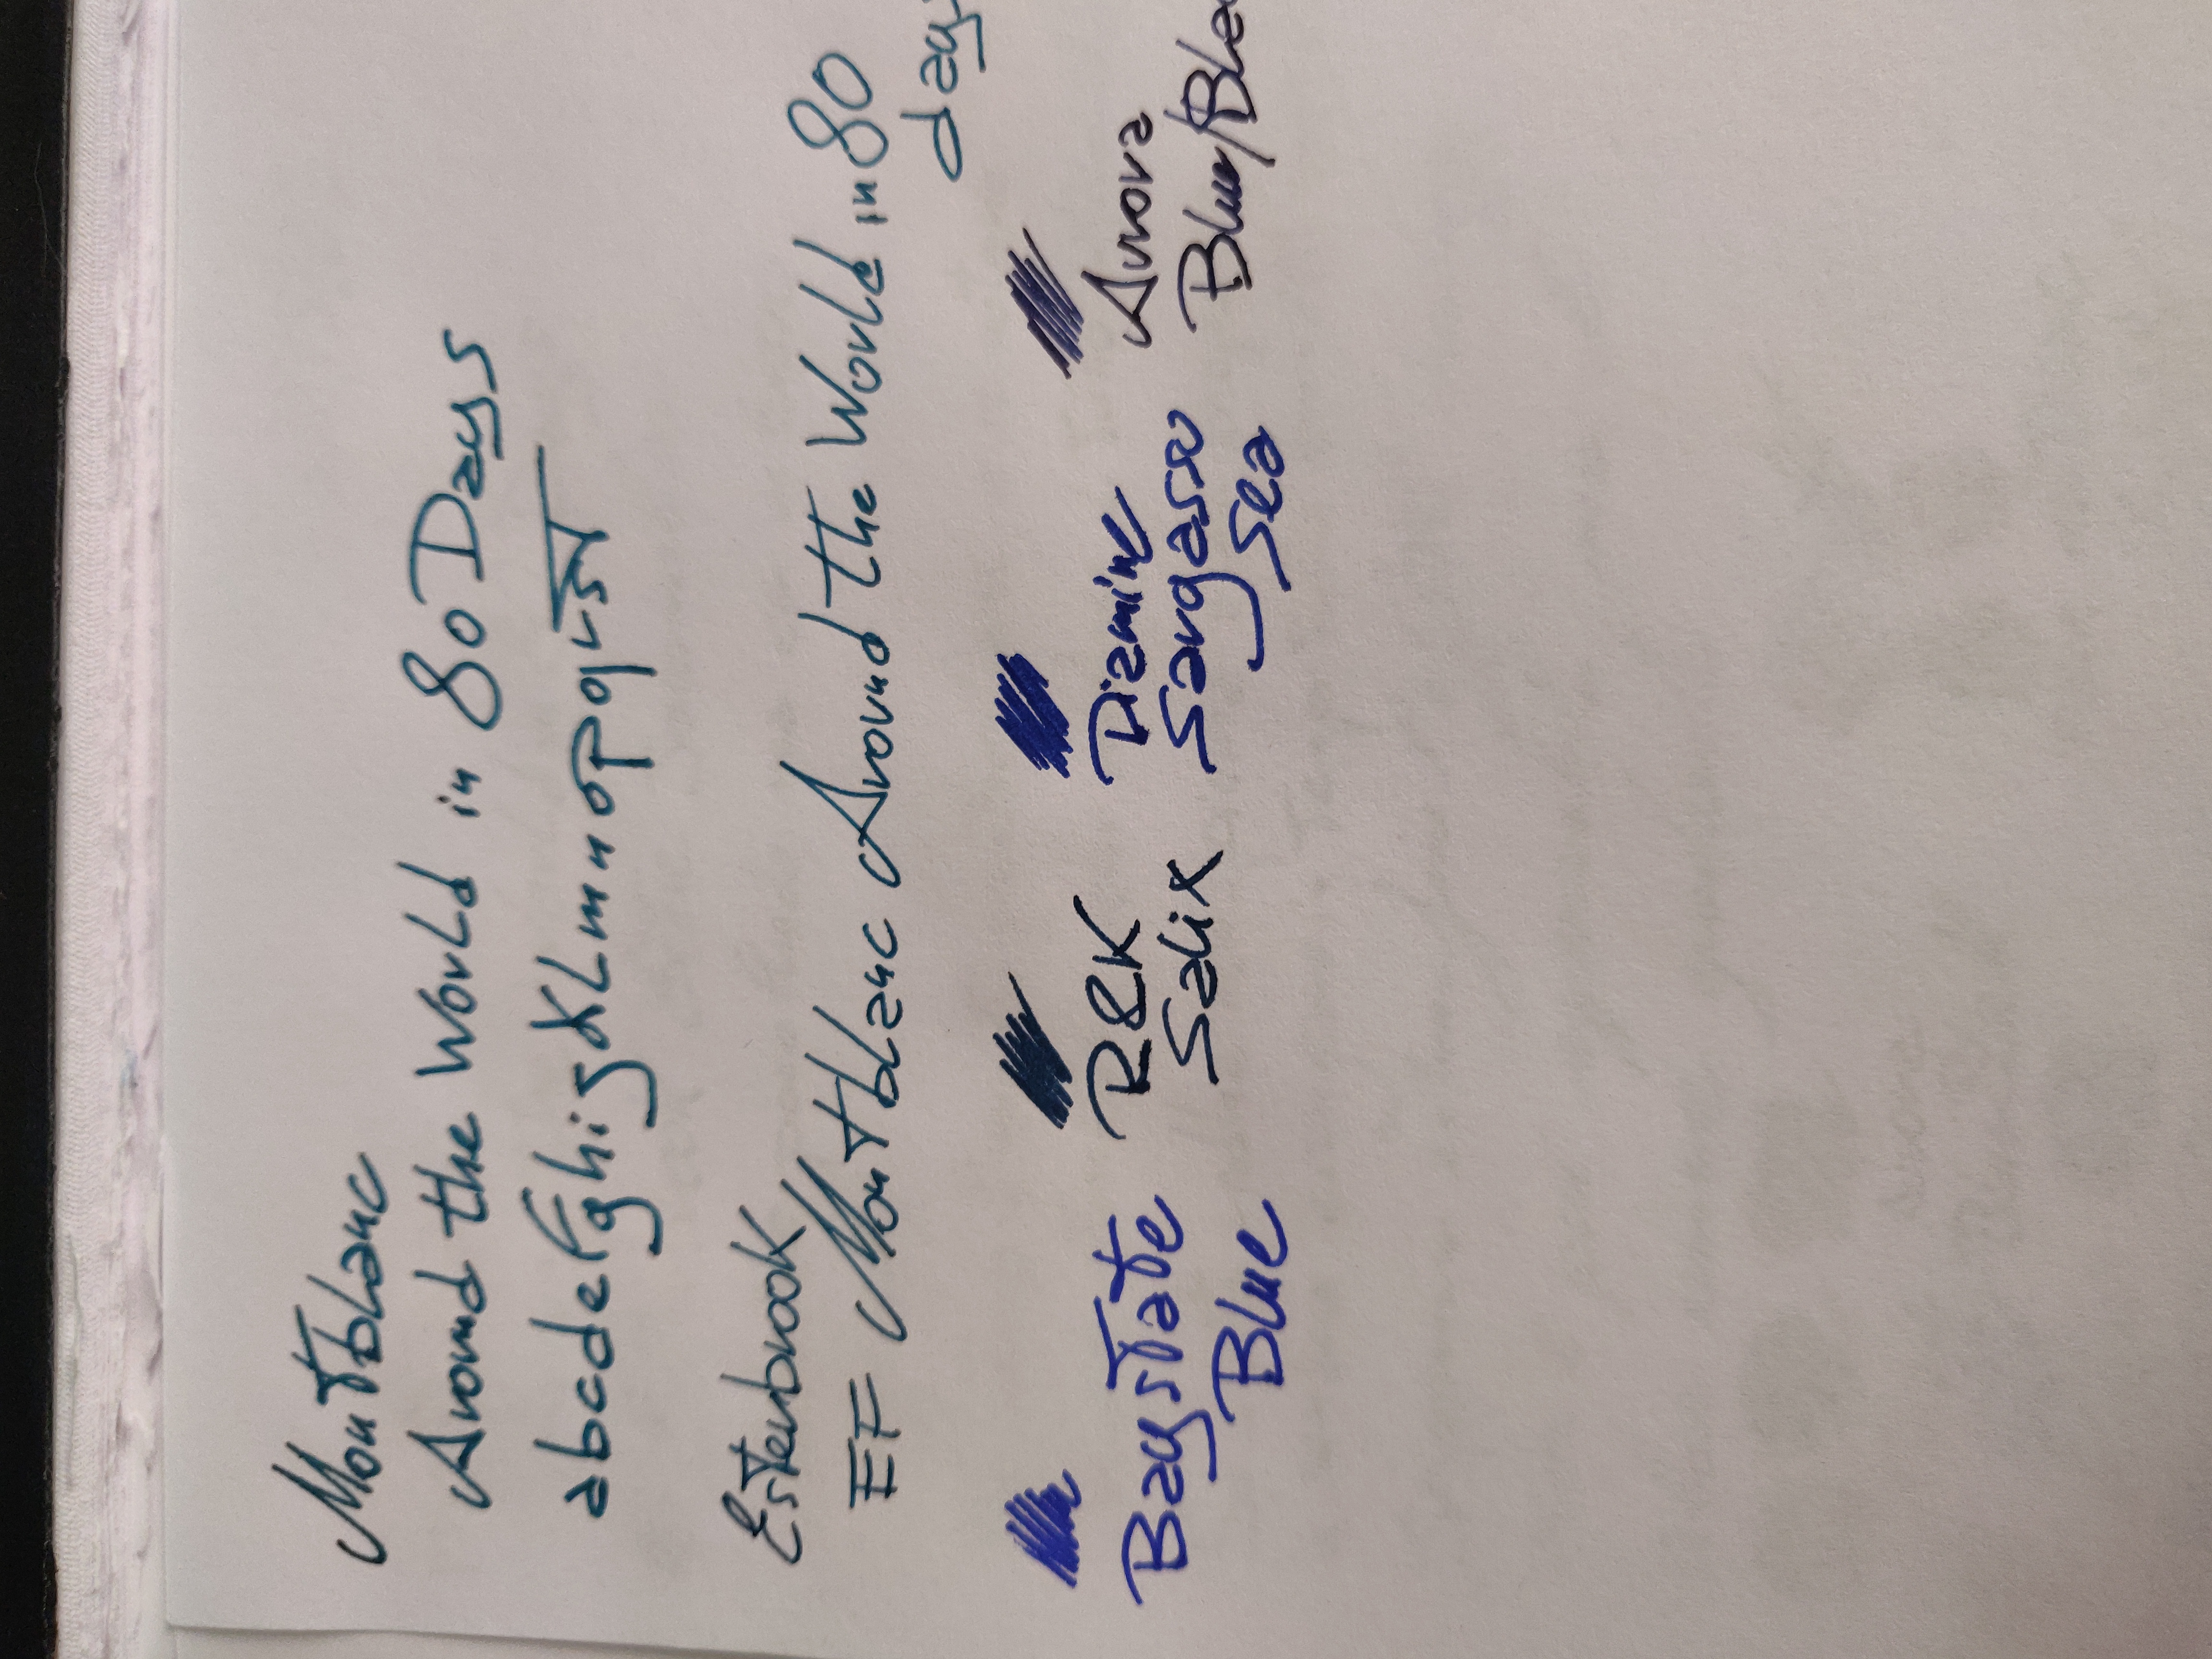 Montblanc
Around the World in 80 Days
abcdefghijkLmnopqrst
Esterbrook
EF Montblanc Around the World in 80
days
Baystate R&K Diamine Aurora
Blue Salix Sargasso Blue/Blac
Sea